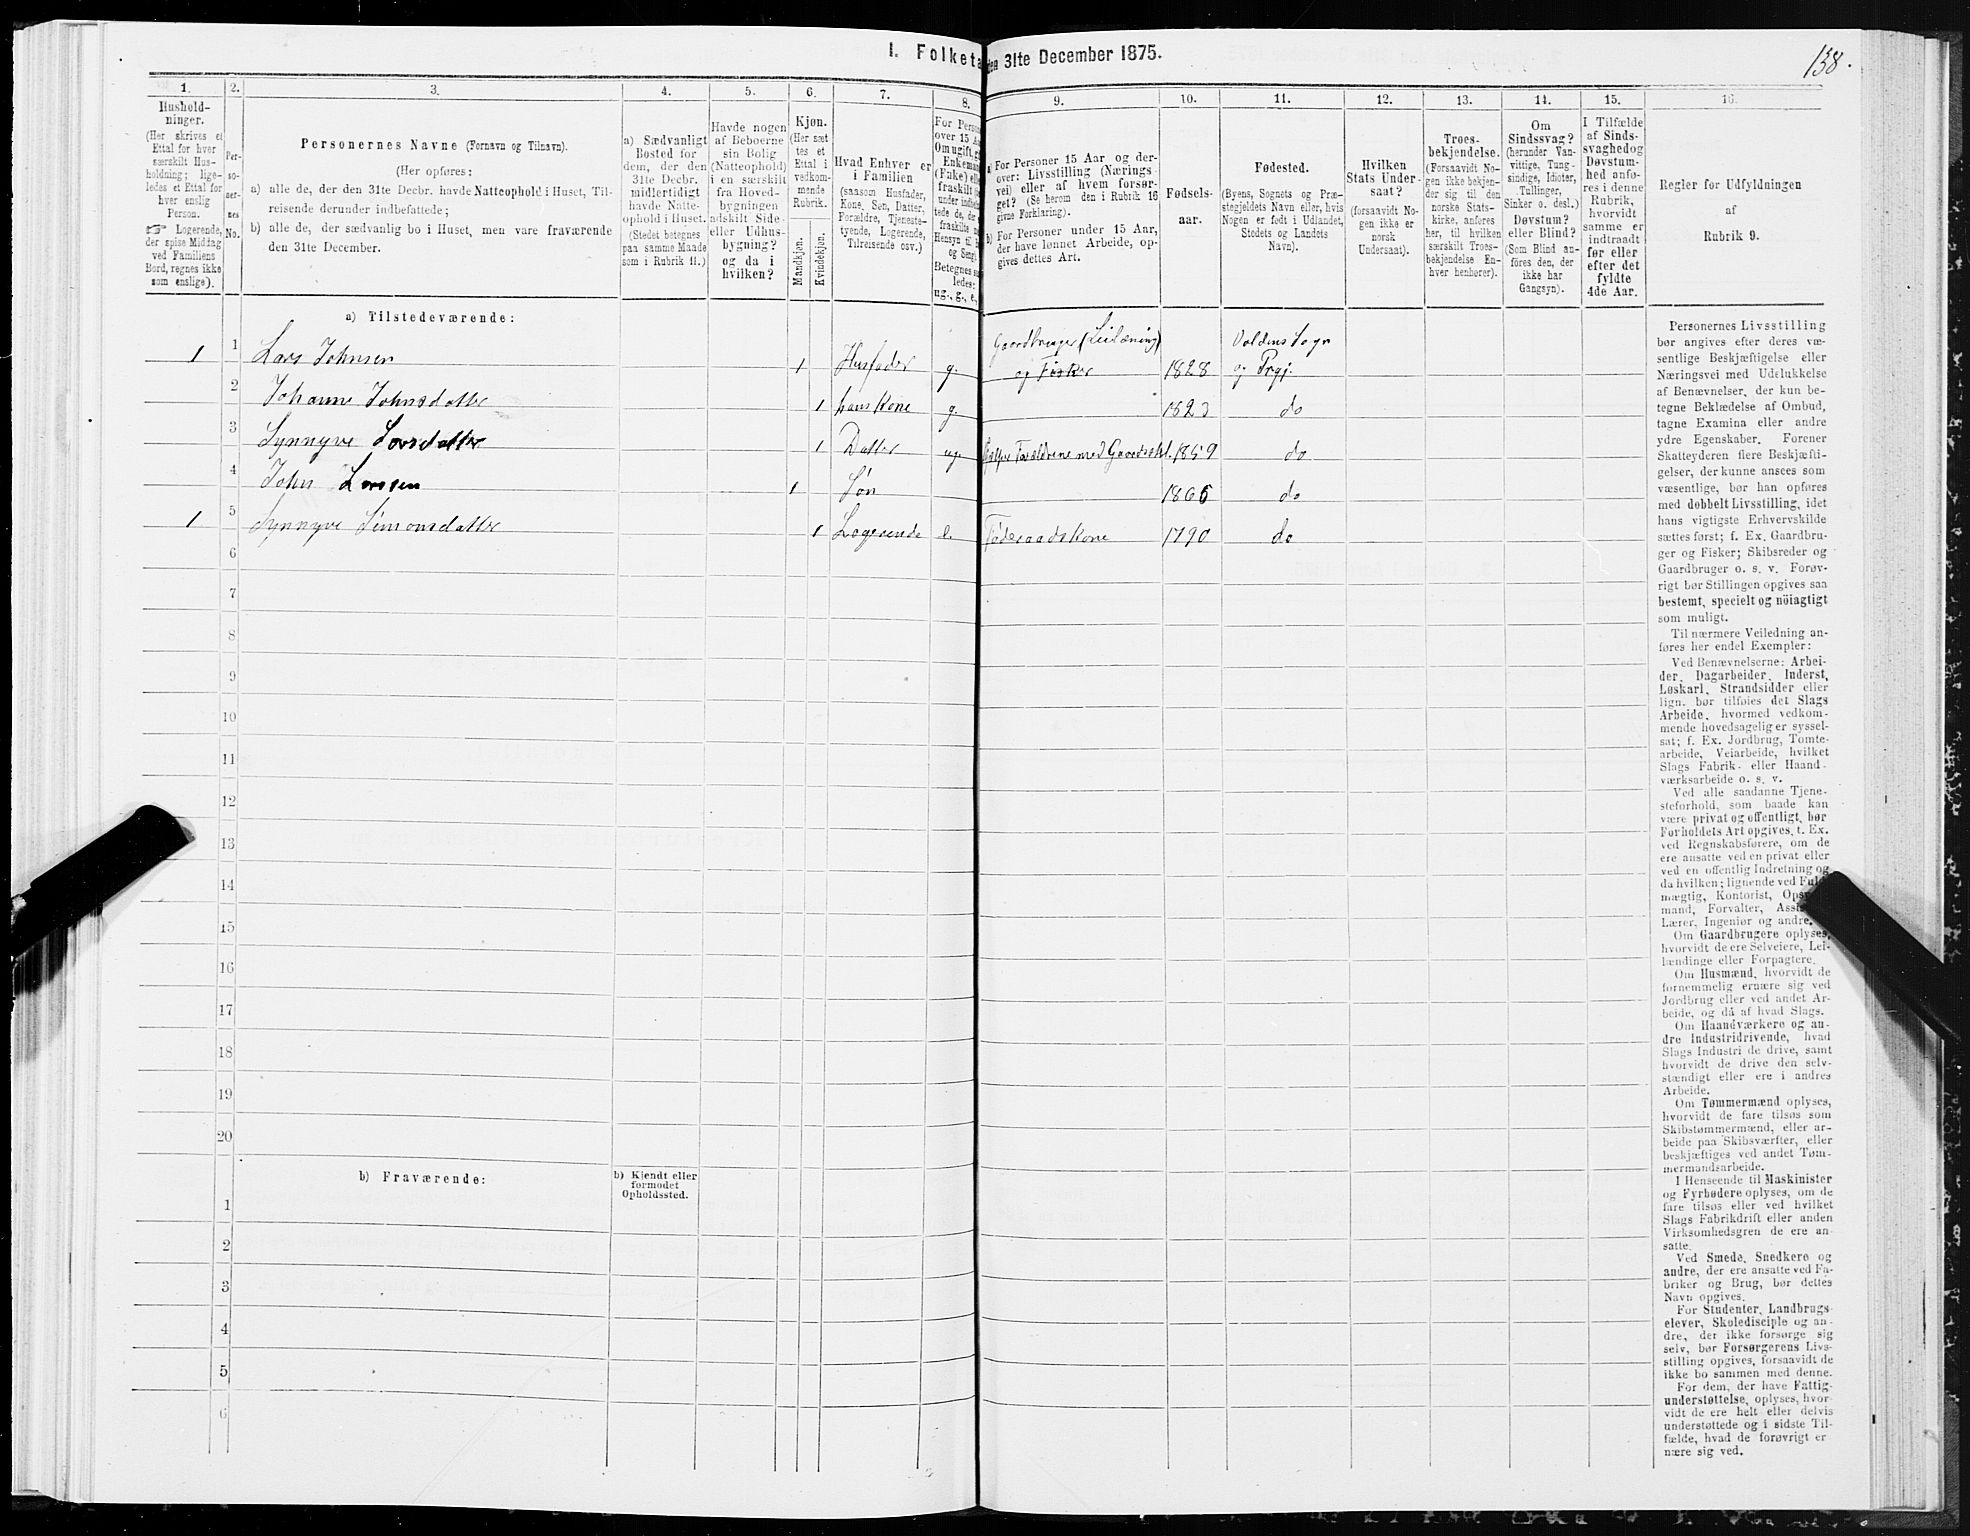 I. Folketa
den 31te December 1875.
138.
1.
2.
3.
4.
5.
6.
7.
8.
9.
10.
11.
12.
13.
14.
15.
16.
Hushold-
ninger.
(Her skrives et
Ettal for hver
særskilt Hus-
holdning; lige-
ledes et Ettal for
hver enslig
Person.
☞ Logerende,
der spise Middag
ved Familiens
Bord, regnes ikke
som enslige).
Per-
so-
ner-
nes
No.
Personernes Navne (Fornavn og Tilnavn).
(Her opføres:
a) alle de, der den 31te Decbr. havde Natteophold i Huset, Til-
reisende derunder indbefattede;
b) alle de, der sædvanlig bo i Huset, men vare fraværende
den 31te December.
a) Sædvanligt
Bosted for
dem, der den
31te Decbr.
midlertidigt
havde Natte-
ophold i Huset.
(Stedet betegnes
paa samme Maade
som i Rubrik 11.)
Havde nogen
af Beboerne
sin Bolig
(Natteophold)
i en særskilt
fra Hoved-
bygningen
adskilt Side-
eller Udhus-
bygning?
og da i
hvilken?
Kjøn.
(Her sæt-
tes et
Ettal i
vedkom-
mende
Rubrik.
Mandkjøn.
Kvindekjøn.
Hvad Enhver er
i Familien
(saasom Husfader,
Kone, Søn, Datter,
Forældre, Tjeneste-
tyende, Logerende,
Tilreisende osv.)
For Person
over 15 Aa
Om ugift, g
Enkeman
(Enke) elle
fraskilt
under indbefat
tede de, de
fraskilte
Hensyn til b
og Seng)
Betegnes sa
ledes:
ug., g., e.,
a) For Personer 15 Aar og der-
over: Livsstilling (Nærings-
vei) eller af hvem forsør-
get? (Se herom den i Rubrik 16
givne Forklaring).
b) For Personer under 15 Aar,
der have lønnet Arbeide, op-
gives dettes Art.
Fødsels-
aar.
Fødested.
(Byens, Sognets og Præ-
stegjeldets Navn eller, hvis
Nogen er født i Udlandet,
Stedets og Landets
Navn).
Hvilken
Stats Under-
saat?
(forsaavidt No-
gen ikke er
norsk
Undersaat).
Troes-
bekjendelse.
(Forsaavidt No-
gen ikke bekjen-
der sig til den
norske Stats-
kirke, anføres
her, til hvilken
særskilt Troes-
bekjendelse En-
hver henhører).
Om
Sindssvag?
(herunder Van-
vittige, Tung-
sindige, Idioter,
Tullinger,
Sinker o. desl.)
Døvstum?
eller Blind?
(Som Blind an-
føres den, der
ikke har
Gangsyn).
I Tilfælde
af Sinds-
svaghed og
Døvstum-
hed anfø-
res i denne
Rubrik,
hvorvidt
samme er
indtraadt
før eller
efter det
fyldte
4de Aar.
Regler for Udfyldningen
af
Rubrik 9.
a) Tilstedeværende:
1 1 Lars Johnsen 1 Husfader g. Gaardbruger (Leilæning) og Fisker 1828 Voldens Sogn og Prgj.
2 Johanne Johnsdatter 1 hans Kone g. 1823 do
3 Synnyve Larsdatter 1 Datter ug. Hjelper Forældrene med Gaardsst. 1859 do
4 John Larsen 1 Søn 1866 do
1 5 Synnyve Simonsdatter 1 Logerende e. Føderaadskone 1790 do
6
7
8
9
10
11
12
13
14
15
16
17
18
19
20
b) Fraværende:
b) Kjendt eller
formodet
Opholdssted.
1
2
3
4
5
6
Personernes Livsstilling
bør angives efter deres væ-
sentlige Beskjæftigelse eller
Næringsvei med Udelukkelse
af Benævnelser, der kun be-
tegne Beklædelse af Ombud,
tagne Examina eller andre
ydre Egenskaber. Forener
Skatteyderen flere Beskjæfti-
gelser, der kunne ansees som
væsentlige, bør han opføres
med dobbelt Livsstilling, idet
hans vigtigste Erhvervskilde
sættes først; f. Ex. Gaardbru-
ger og Fisker; Skibsreder og
Gaardbruger o. s. v. Forøv-
rigt bør Stillingen opgives saa
bestemt, specielt og nöiagtigt
som muligt.
Til nærmere Veiledning an-
føres her endel Exempler:
Ved Benævnelserne: Arbei-
der, Dagarbeider, Inderst,
Løskarl, Strandsidder eller
lign. bør tilføies det Slags
Arbeide, hvormed vedkom-
mende hovedsagelig er syssel-
sat; f. Ex. Jordbrug, Tomte-
arbeide, Veiarbeide, hvilket
Slags Fabrik- eller Haand-
værksarbeide o. s. v.
Ved alle saadanne Tjene-
steforhold, som baade kan
være privat og offentligt, bør
Forholdets Art opgives, t. Ex.
ved Regnskabsførere, om de
ere ansatte ved en privat eller
ved en offentlig Indretning og
da hvilken; lignende ved Fuld-
mægtig, Kontorist, Opsyns-
mand, Forvalter, Assi
Lærer, Ingeniør og andre.
Om Gaardbrugere oplyses,
hvorvidt de ere Selveiere, Lei-
lændinge eller Forpagtere.
Om Husmænd, hvorvidt de
fornemmelig ernære sig ved
Jordbrug eller ved andet Ar-
beide, og då af hvad Slags.
Om Haandværkere og an-
dre Industridrivende, hvad
Slags Industri de drive, samt
hvorvidt de drive den selv-
stændigt eller ere i andres
Arbeide.
Om Tømmermænd oplyses,
hvorvidt de fare tilsøs som
Skibstømmermænd, eller ar-
beide paa Skibsværfter, eller
beskjæftiges ved andet Tøm-
mermandsarbeide.
I Henseende til Maskinister
og Fyrbødere oplyses, om de
fare tilsøs eller ved hvilket
Slags Fabrikdrift eller anden
Virksomhedsgren de ere an-
satte.
Ved Smede, Snedkere og
andre, der ere ansatte ved Fa-
briker og Brug, bør dettes
Navn opgives.
For Studenter, Landbrugs-
elever, Skoledisciple og an-
dre, der ikke forsørge sig
selv, bør Forsørgerens Livs-
stilling opgives, forsaavidt de
ikke bo sammen med denne.
For dem, der have Fattig-
understøttelse, oplyses, hvor-
vidt de ere helt eller delvis
understøttede og i sidste Til-
fælde, hvad de forøvrigt er-
nære sig ved.